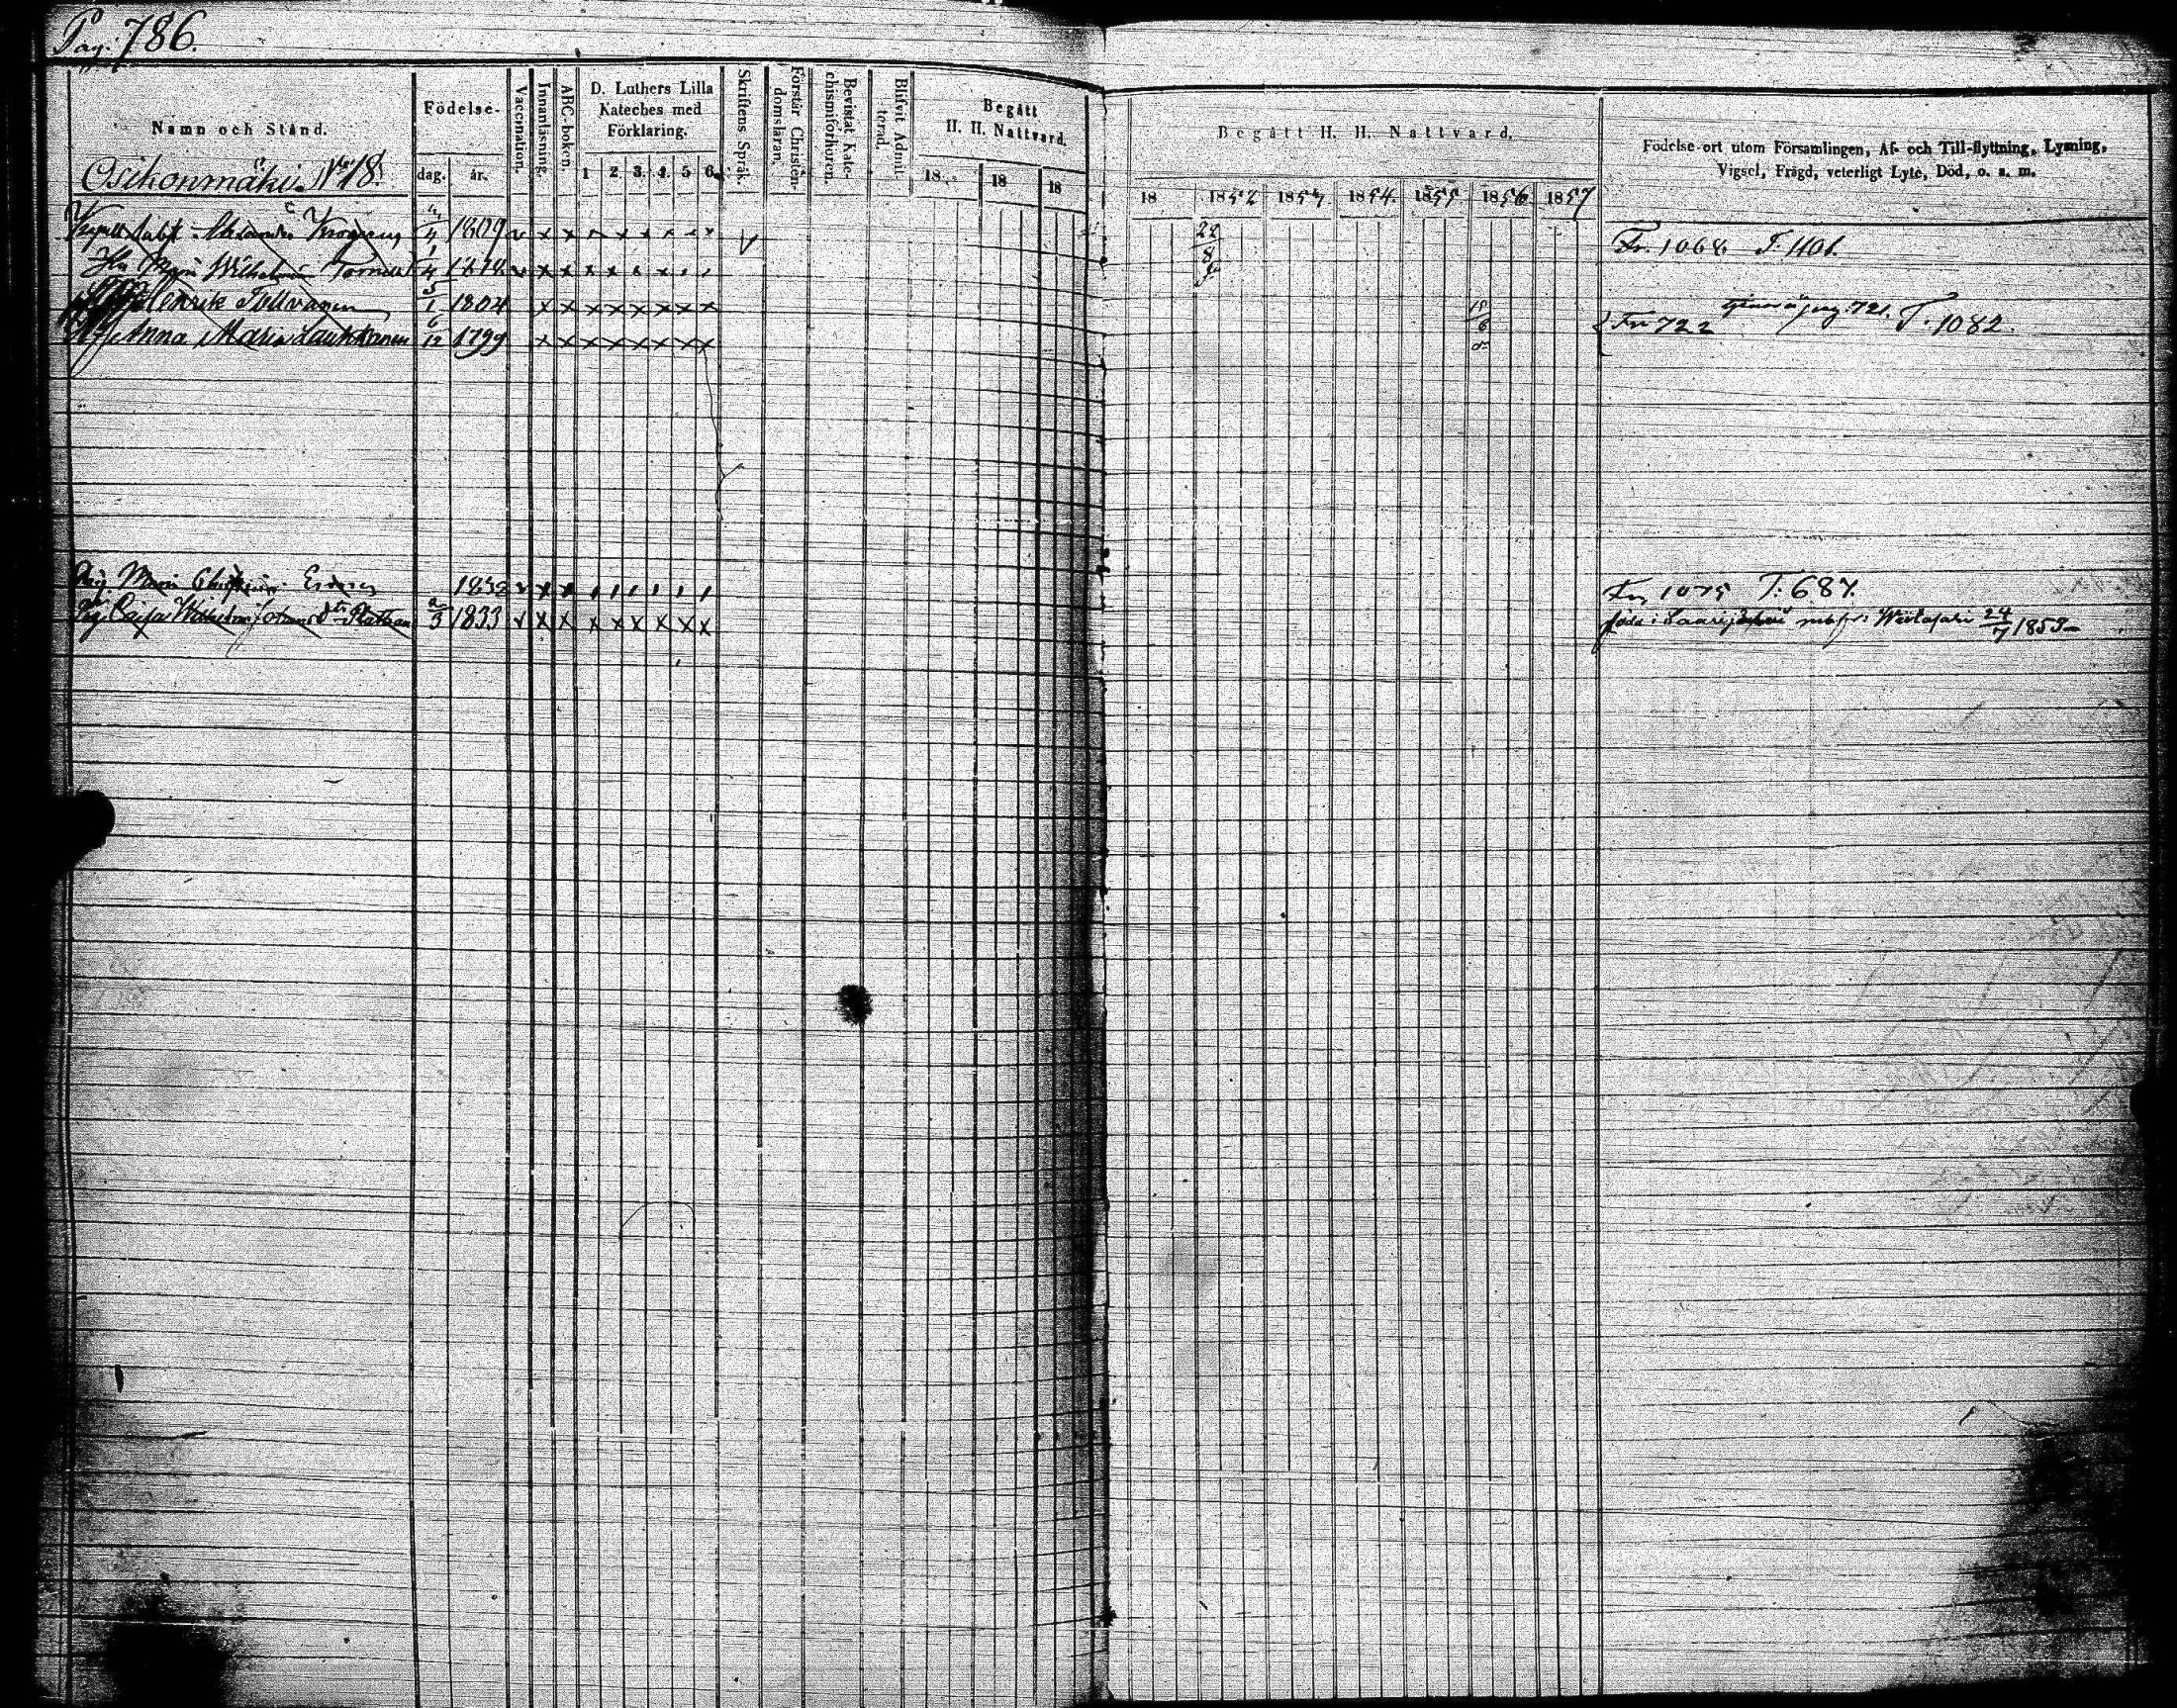 Pag. 786.
Namn och Stånd.
Födelse-
dag. år.
Vaccination.
Innanläsning.
ABC-boken.
D. Luthers Lilla
Kateches med
Förklaring.
1 2 3. 4. 5 6.
Skriftens Språk.
Förstår Christen-
domsläran.
Bevistat Kate-
chismiförhören.
Blifvit Admit-
terad.
Begått
H. H. Nattvard.
18 18 18
Begått H. H. Nattvard.
18 1852 1853 1854. 1855 1856 1857
Födelse-ort utom Församlingen, Af- och Till-flyttning, Lysning,
Vigsel, Frägd, veterligt Lyte, Död, o. s. m.
Osikonmäki. No 18.
Krogerus 4 1809 22 8 Fr. 1068 T. 1101.
Hu Maria Wilhelmina 4
Henrik Tullvanen 5 1 1804 6 pag. 721.
Anna Maria Laukkanen 6 12 1799 Fr. 722 T. 1082.
Pig. Maria 1832 Fr. 1075 T. 687.
Pig. Caisa Wilhelmina 2 3 1833 född i 24 7 1853